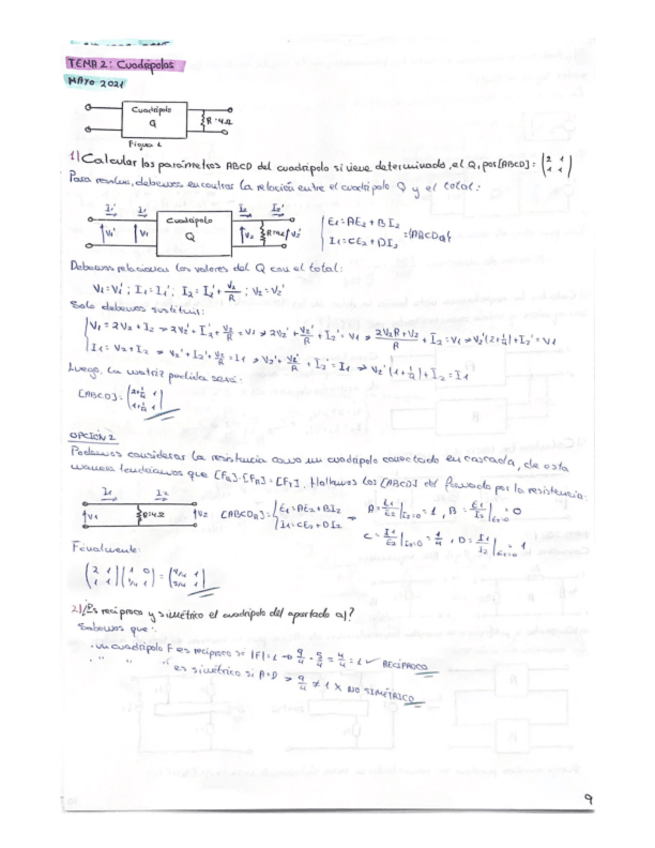 TEMA 2: Cuadripolos
MAYO 2021
Cuadripolo
Q
R=4Ω
Figura 1
1) Calcular los parámetros ABCD del cuadripolo si viene determinado, el Q, por [ABCD] = (2 1 / 1 1)
Para resolver, debemos encontrar la relación entre el cuadripolo Q y el total:
I1' I1 Cuadripolo Q I2 I2'
V1' V1 V2 R=4Ω V2'
E1 = AE2 + BI2
I1 = CE2 + DI2
Debemos relacionar los valores del Q con el total:
V1 = V1' ; I1 = I1' ; I2 = I2' + V2/R ; V2 = V2'
Solo debemos sustituir:
V1 = 2V2 + I2 → 2V2' + I2' + V2/R = V1 → 2V2' + V2'/R + I2' = V1 → 2V2R+V2/R + I2 = V1 → V2'(2+1/4) + I2' = V1
I1 = V2 + I2 → V2' + I2' + V2/R = I1 → V2' + V2'/R + I2' = I1 → V2'(1+1/4) + I2 = I1
Luego, la matriz pedida será:
[ABCD] = (2+1/4 1 / 1+1/4 1)
OPCIÓN 2
Podemos considerar la resistencia como un cuadripolo conectado en cascada, de esta
manera tendríamos que [FQ]·[FR] = [FT]. Hallamos los [ABCD] del formado por la resistencia:
I1 I2
V1 R=4Ω V2 [ABCD R] = E1 = AE2 + BI2
I1 = CE2 + DI2
A = E1/E2 | I2=0 = 1, B = E1/I2 | E2=0 = 0
C = I1/E2 | I2=0 = 1/4, D = I1/I2 | E2=0 = 1
Finalmente:
(2 1 / 1 1)(1 0 / 1/4 1) = (9/4 1 / 5/4 1)
2) ¿Es recíproco y simétrico el cuadripolo del apartado a)?
Sabemos que:
· un cuadripolo F es recíproco si |F| = 1 → 9/4 - 5/4 = 4/4 = 1 ✓ RECÍPROCO
· " " " es simétrico si A=D → 9/4 ≠ 1 X NO SIMÉTRICO
9